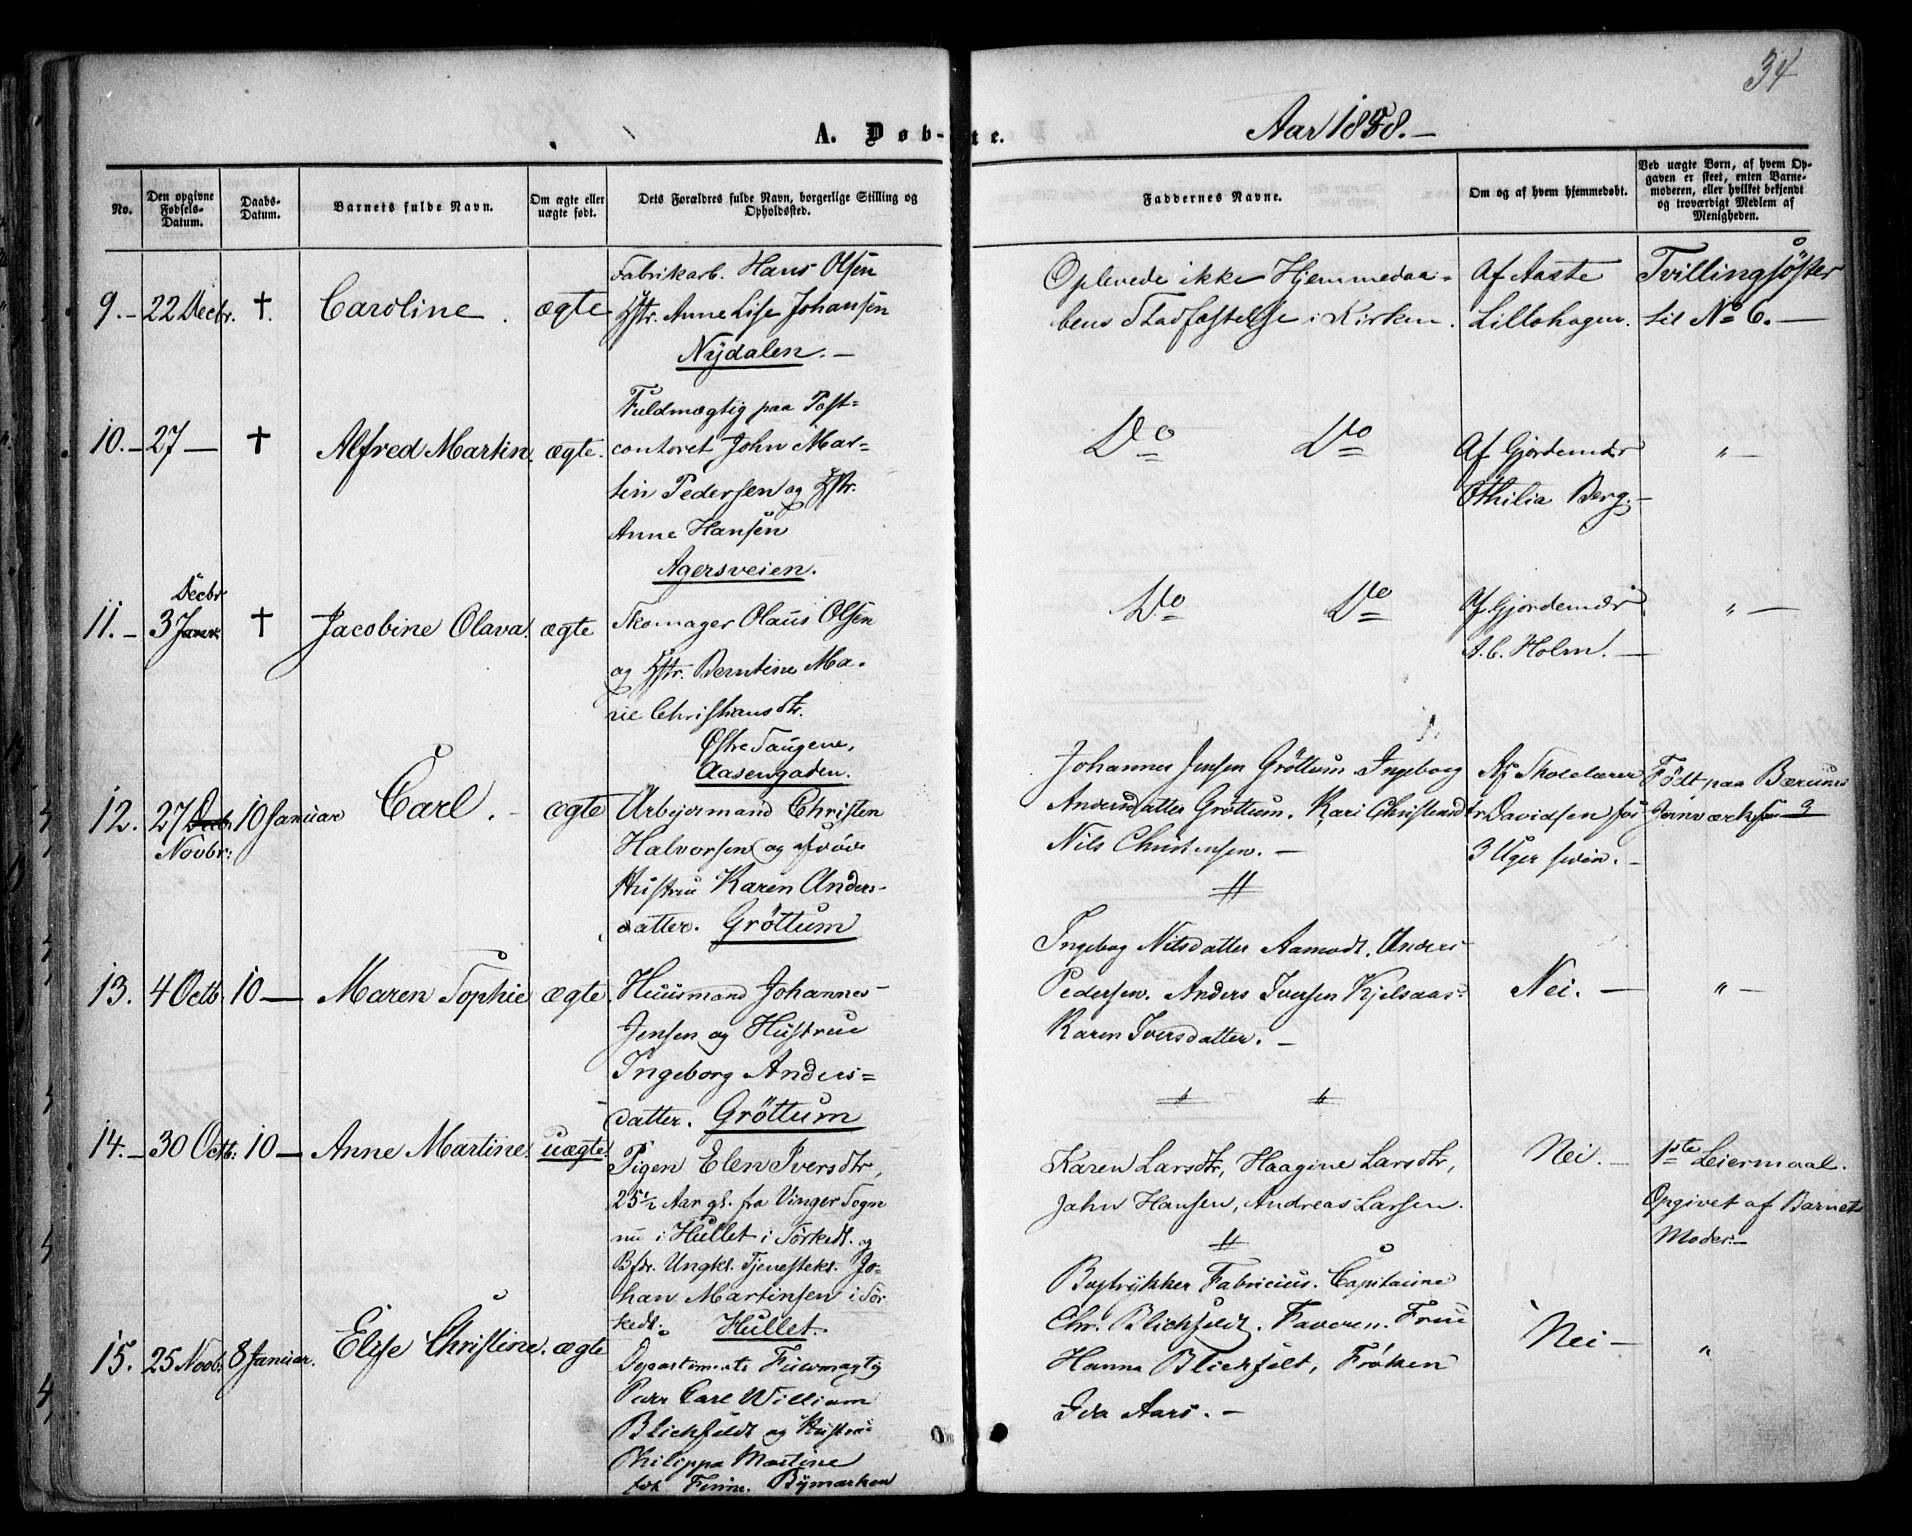 34
A. Døb-te.
Aar 1858.-
No.
Den opgivne Fødsels-Datum.
Daabs-Datum.
Barnets fulde Navn.
Om ægte eller uægte født.
Dets Forældres fulde Navn, borgerlige Stilling og Opholdssted.
Faddernes Navne.
Om og af hvem hjemmedøbt.
Ved uægte Børn, af hvem Opgaven er skeet, enten Barnemoderen, eller hvilket bekjendt og troværdigt Medlem af Menigheden.
9.- 22 Decbr. †. Caroline. ægte
Fabrikarb. Hans Olsen
Hstr. Anne Lise Johansen
Nydalen.-
Oplevede ikke Hjemmedaa-
bens Stadfæstelse i Kirken.
Af Aaste
Lillohagen.
Tvillingsöster
til No 6.-
10.- 27 - † Alfred Martin. ægte.
Fuldmægtig paa Post-
contoret John Mar-
tin Pedersen og Hstr.
Anne Hansen
Agersveien.
Do Do
Af Gjordemdr
Othilia Berg.-
" -
11.- 3 Decbr Janr. † Jacobine Olava. ægte
Skomager Olaus Olsen
og Hstr. Berntine Ma-
rie Christiansdtr.
Östre Saugene,
Aasengaden.
Do Do
Af Gjordemdr
A.C. Holm.-
" -
12. 27 Decb. Novbr: 10 Januar Carl.- ægte
Arbejdsmand Christen
Halvorsen og
Hustru Karen Anders-
datter. Gröttum
Johannes Jensen Gröttum. Ingeborg
Andersdatter Gröttum. Kari Christensdtr
Nils Christensen.-
Af Skolelærer
Davidsen for
3 Uger siden.-
Födt paa Bærums
Jernværk
13. 4 Octb. 10 - Maren Sophie ægte.
Huusmand Johannes
Jensen og Hustrue
Ingeborg Anders=
datter. Gröttum
Ingebog Nilsdatter Aamodt. Anders
Pedersen. Anders Iversen Kjelsaas.
Karen Iversdatter.-
Nei.-
" -
14.- 30 Octb: 10 - Anne Martine. uægte.
Pigen Elen Iversdtr,
25½ Aar gl. fra Vinger Sogn
nu i Hullet i Sörkedl. og
Bfdr. Ungkl. Tjenestekl. Jo-
han Martinsen i Sör-
kedl. Hullet.
Karen Larsdtr, Haagine Larsdtr,
John Hansen, Andreas Larsen.
Nei.-
1ste Leiermaal.
Opgivet af Barnets
Moder.-
15. 25 Novb. 8 Januar. Elise Christine. ægte
Departements Fuldmægtig
Carl William
Blichfeldt og Hustrue
Philippa Martine
født Finne. Bymarken
Bogtrykker Fabricius. Capitaine
Chr. Blichfeldt. Faderen. Frue
Hanna Blichfelt, Fröken
Ida Aars.-
Nei -
"